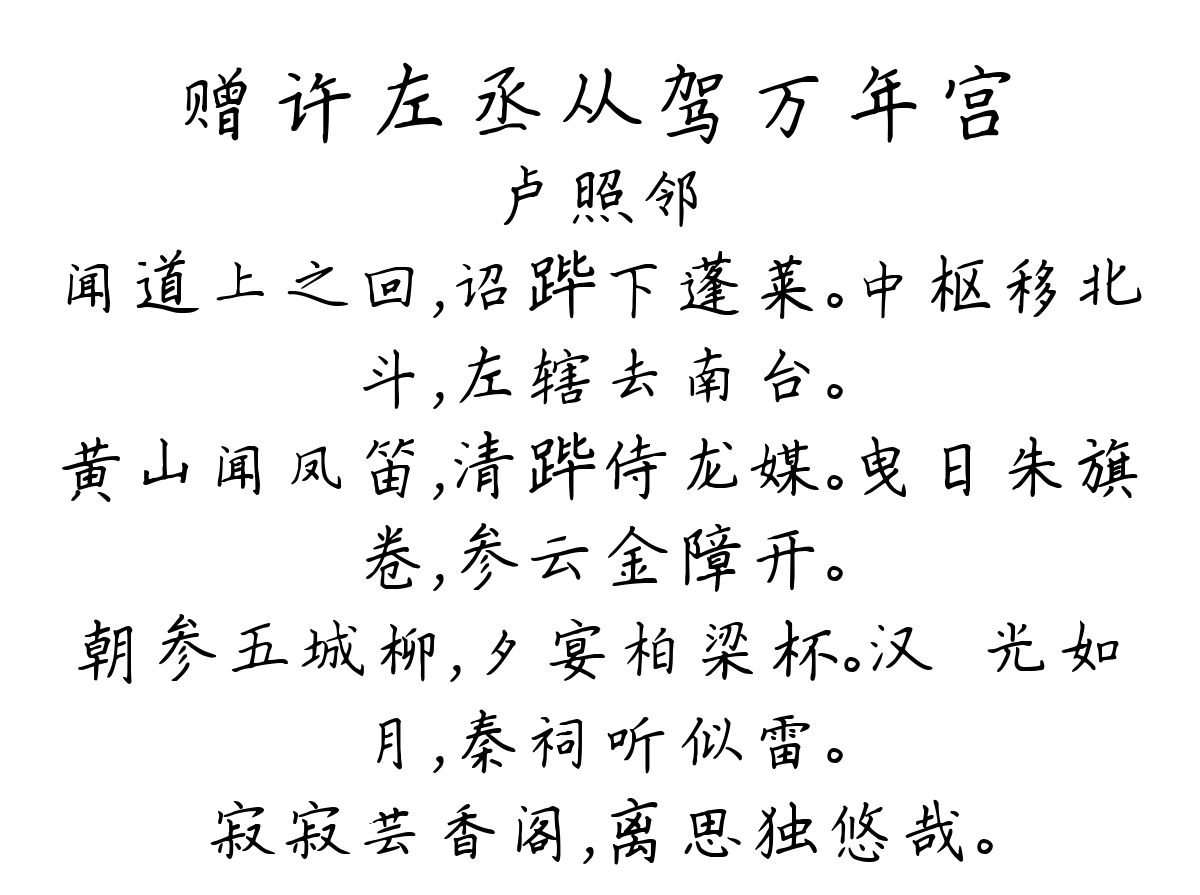 赠许左丞从驾万年宫
卢照邻
闻道上之回,诏跸下蓬莱。中枢移北
斗,左辖去南台。
黄山闻凤笛,清跸侍龙媒。曳日朱旗
卷,参云金障开。
朝参五城柳,夕宴柏梁杯。汉 光如
月,秦祠听似雷。
寂寂芸香阁,离思独悠哉。